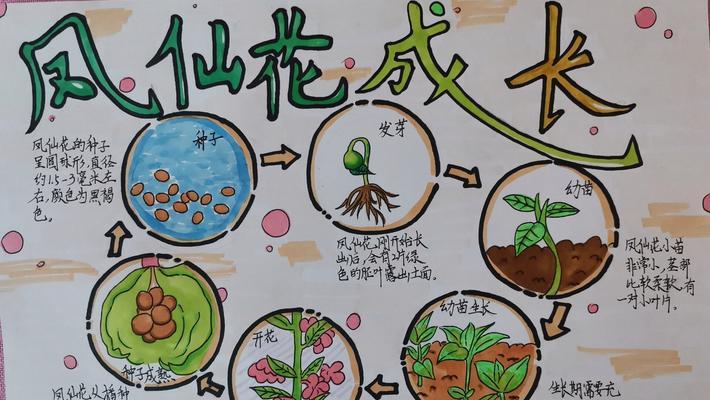 凤仙花成长
种子
凤仙花的种子
呈圆球形，直径
约1.5-3毫米左
右，颜色为黑褐
色。
发芽
凤仙花刚开始长
出后，会有2片绿
色的胚叶露出土面。
幼苗
凤仙花小苗
非常小，茎部
比较柔软，有
一对小叶片。
幼苗生长
生长期需要充
开花
种子成熟
凤仙花从播种